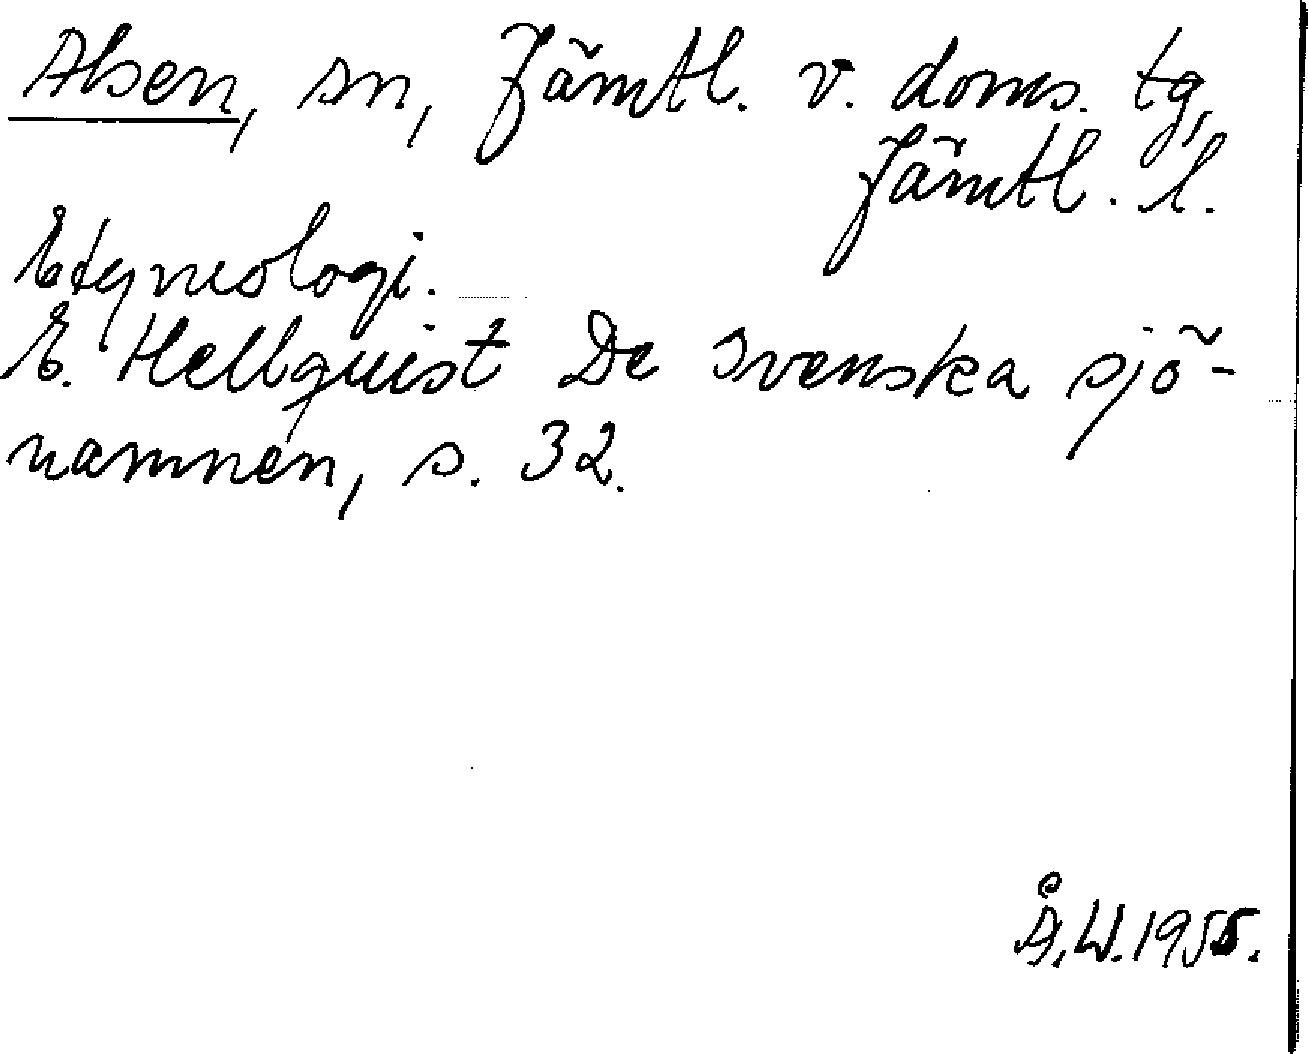 Alsen, sn, Jämtl. v. doms. tg,
Jämtl. l.
Etymologi.
E. Hellquist De svenska sjö-
namnen, s. 32.
Å.W. 1955.